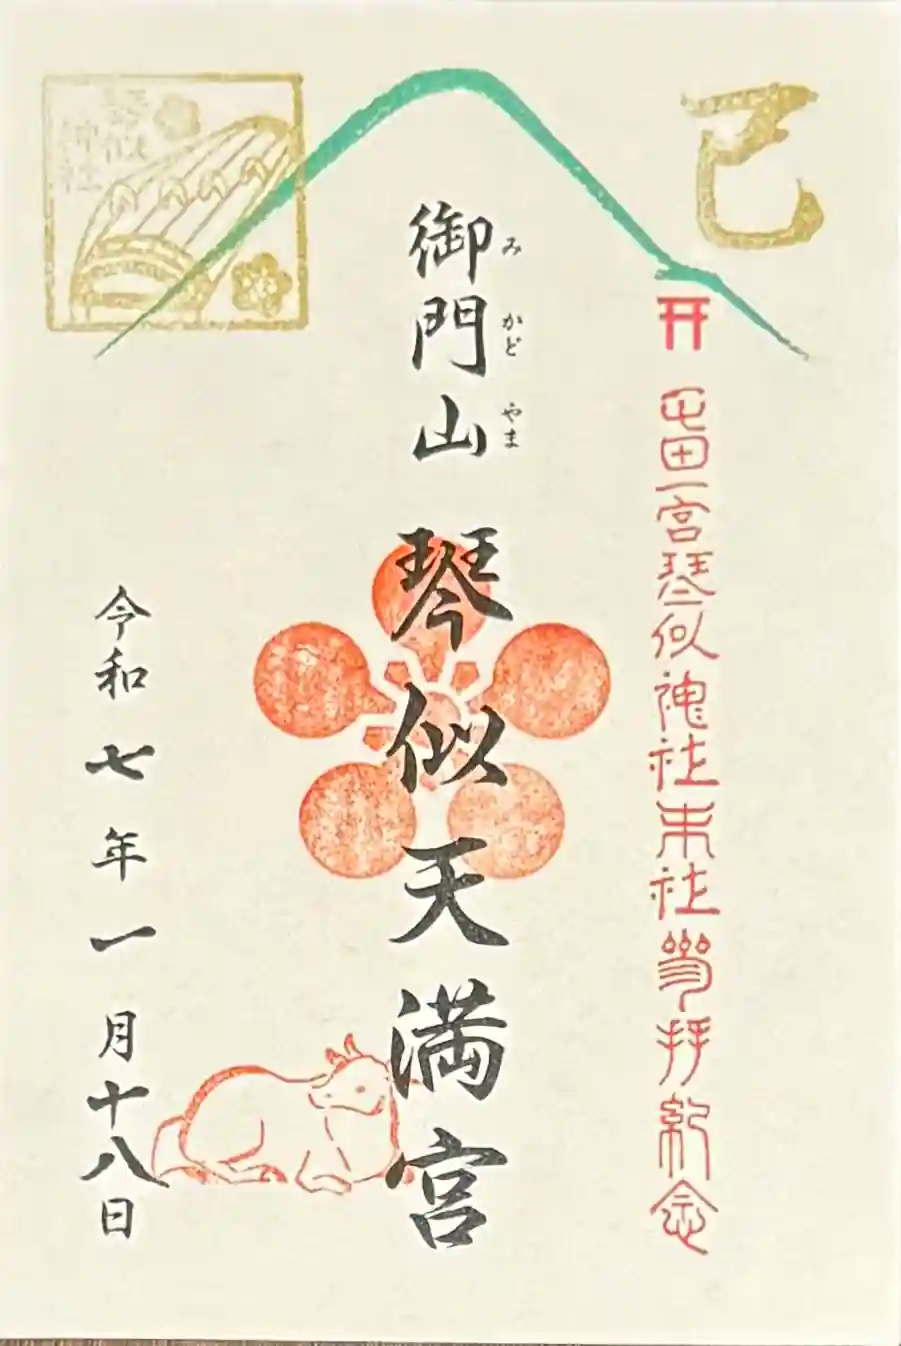 巳
屯田一宮琴似神社末社参拝紀念
御門山 琴似天満宮
みかどやま
琴似
神社
令和七年一月十八日